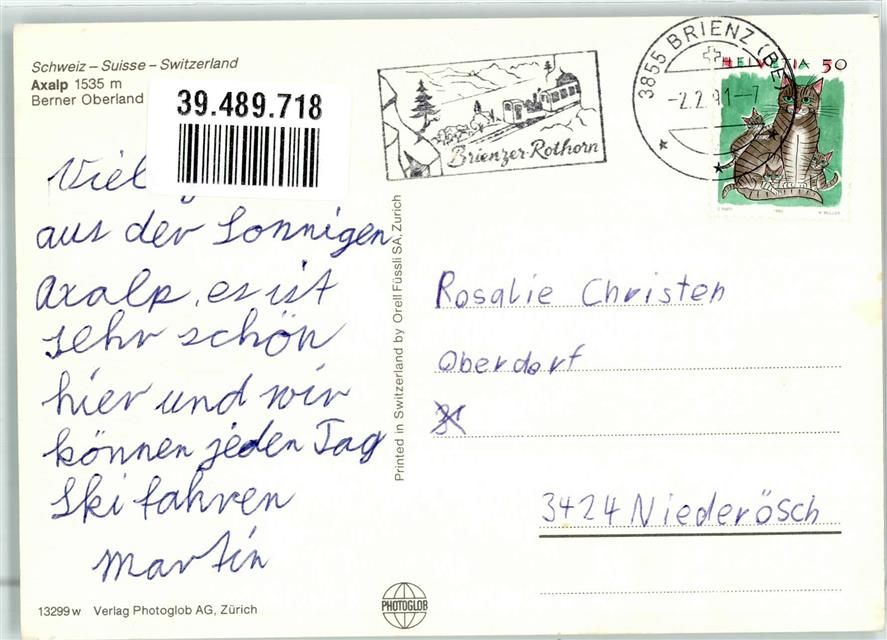 Schweiz – Suisse – Switzerland
Axalp 1535 m
Berner Oberland
39.489.718
Viel
aus der Sonnigen
Axalp, es ist
sehr schön
hier und wir
können jeden Tag
Ski fahren
Martin
13299 w Verlag Photoglob AG, Zürich
Printed in Switzerland by Orell Füssli SA, Zurich
PHOTOGLOB
Brienzer-Rothorn
3855 BRIENZ (BE)
-2.2.91-7
HELVETIA 50
Rosalie Christen
Oberdorf
3424 Niederösch